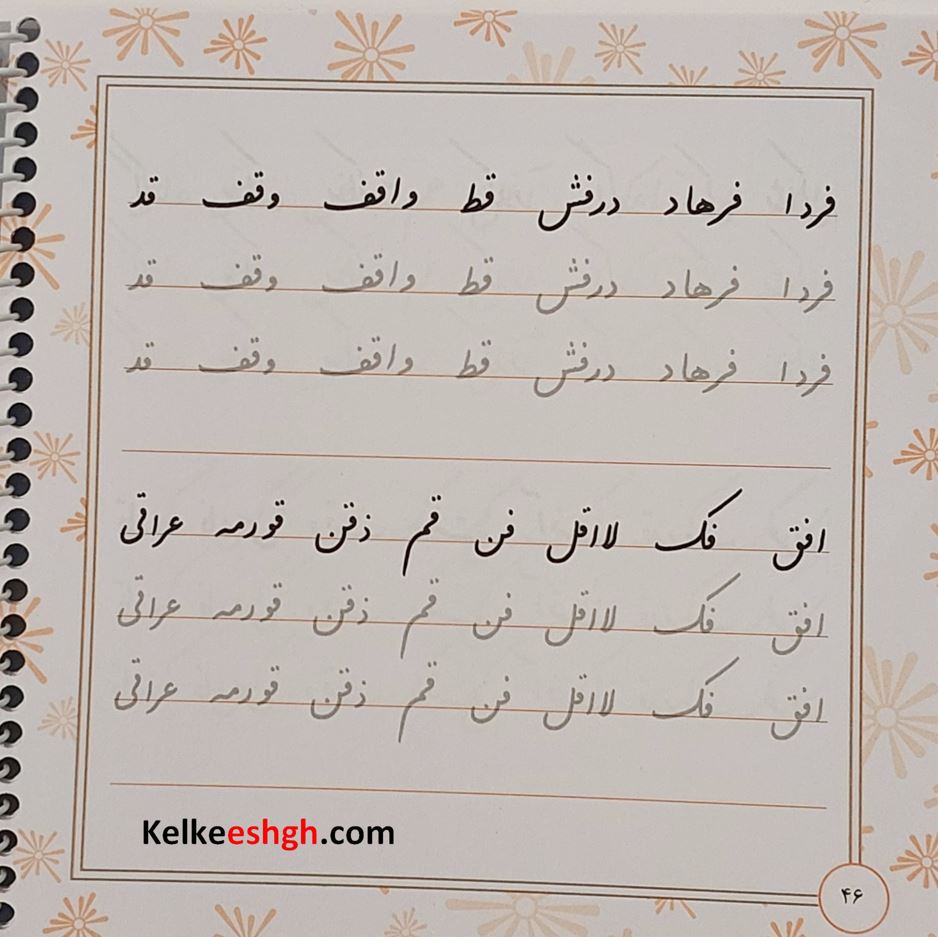 فردا فرهاد درفش قط واقف وقف قد
فردا فرهاد درفش قط واقف وقف قد
فردا فرهاد درفش قط واقف وقف قد
افق فک لااقل فن قم ذقن قورمه عراقی
افق فک لااقل فن قم ذقن قورمه عراقی
افق فک لااقل فن قم ذقن قورمه عراقی
Kelkeeshgh.com
۴۶